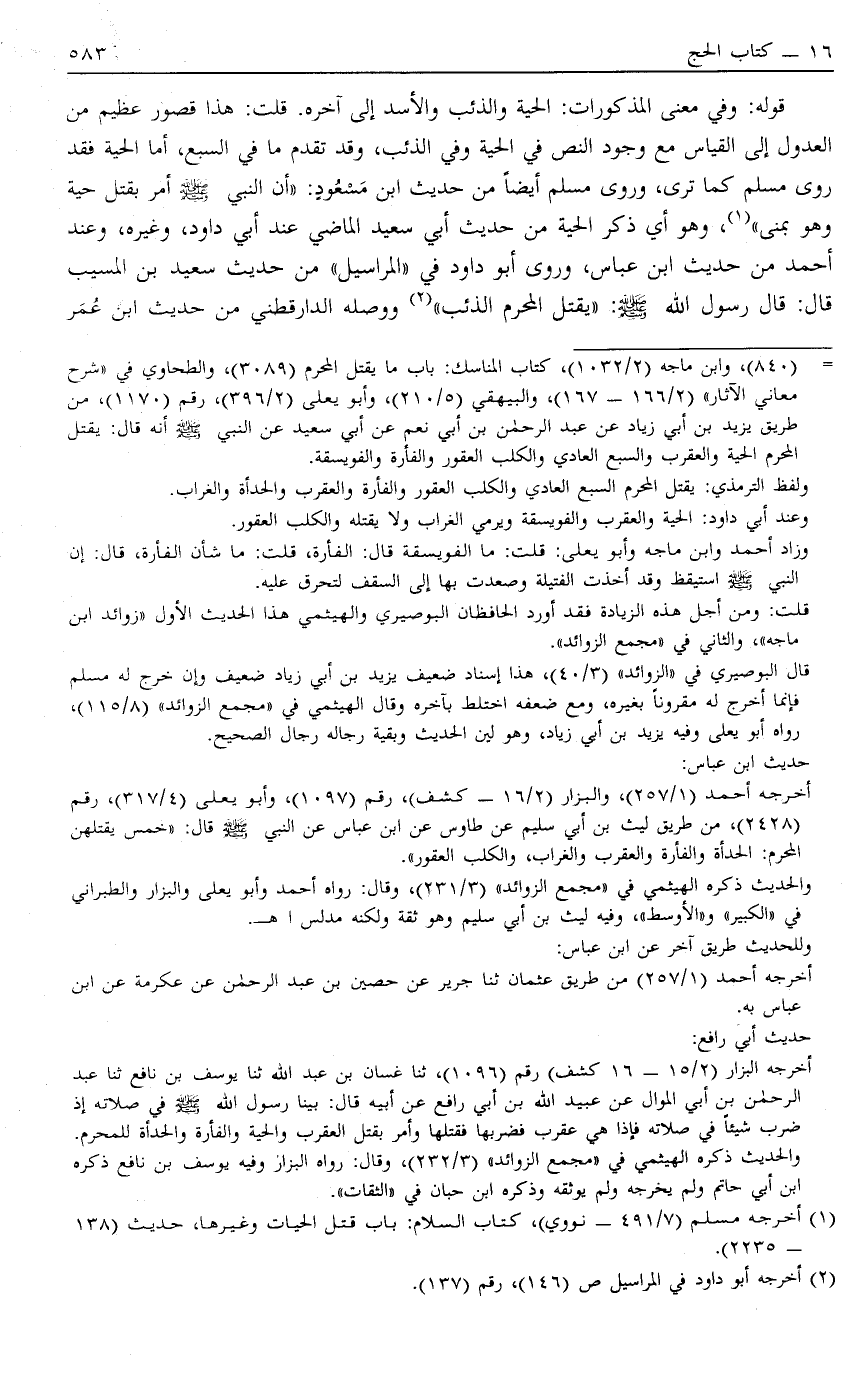 ١٦ ـ كتاب الحج ٥٨٣
قوله: وفي معنى المذكورات: الحية والذئب والأسد إلى آخره. قلت: هذا قصور عظيم من
العدول إلى القياس مع وجود النص في الحية وفي الذئب، وقد تقدم ما في السبع، أما الحية فقد
روى مسلم كما ترى، وروى مسلم أيضاً من حديث ابن مَسْعُودٍ: «أن النبي ﷺ أمر بقتل حية
وهو بمنى»(١)، وهو أي ذكر الحية من حديث أبي سعيد الماضي عند أبي داود، وغيره، وعند
أحمد من حديث ابن عباس، وروى أبو داود في «المراسيل» من حديث سعيد بن المسيب
قال: قال رسول الله ﷺ: «يقتل المحرم الذئب»(٢) ووصله الدارقطني من حديث ابن عُمَر
= (٨٤٠)، وابن ماجه (١٠٣٢/٢)، كتاب المناسك: باب ما يقتل المحرم (٣٠٨٩)، والطحاوي في «شرح
معاني الآثار» (١٦٦/٢ ـ ١٦٧)، والبيهقي (٢١٠/٥)، وأبو يعلى (٣٩٦/٢)، رقم (١١٧٠)، من
طريق يزيد بن أبي زياد عن عبد الرحمٰن بن أبي نعم عن أبي سعيد عن النبي ﷺ أنه قال: يقتل
المحرم الحية والعقرب والسبع العادي والكلب العقور والفأرة والفويسقة.
ولفظ الترمذي: يقتل المحرم السبع العادي والكلب العقور والفأرة والعقرب والحدأة والغراب.
وعند أبي داود: الحية والعقرب والفويسقة ويرمي الغراب ولا يقتله والكلب العقور.
وزاد أحمد وابن ماجه وأبو يعلى: قلت: ما الفويسقة قال: الفأرة، قلت: ما شأن الفأرة، قال: إن
النبي ﷺ استيقظ وقد أخذت الفتيلة وصعدت بها إلى السقف لتحرق عليه.
قلت: ومن أجل هذه الزيادة فقد أورد الحافظان البوصيري والهيثمي هذا الحديث الأول «زوائد ابن
ماجه»، والثاني في «مجمع الزوائد».
قال البوصيري في «الزوائد» (٤٠/٣)، هذا إسناد ضعيف يزيد بن أبي زياد ضعيف وإن خرج له مسلم
فإنما أخرج له مقروناً بغيره، ومع ضعفه اختلط بآخره وقال الهيثمي في «مجمع الزوائد» (١١٥/٨)،
رواه أبو يعلى وفيه يزيد بن أبي زياد، وهو لين الحديث وبقية رجاله رجال الصحيح.
حديث ابن عباس:
أخرجه أحمد (٢٥٧/١)، والبزار (١٦/٢ ـ كشف)، رقم (١٠٩٧)، وأبو يعلى (٣١٧/٤)، رقم
(٢٤٢٨)، من طريق ليث بن أبي سليم عن طاوس عن ابن عباس عن النبي ﷺ قال: «خمس يقتلهن
المحرم: الحدأة والفأرة والعقرب والغراب، والكلب العقور».
والحديث ذكره الهيثمي في «مجمع الزوائد» (٢٣١/٣)، وقال: رواه أحمد وأبو يعلى والبزار والطبراني
في «الكبير» و«الأوسط»، وفيه ليث بن أبي سليم وهو ثقة ولكنه مدلس ا هـ.
وللحديث طريق آخر عن ابن عباس:
أخرجه أحمد (٢٥٧/١) من طريق عثمان ثنا جرير عن حصين بن عبد الرحمٰن عن عكرمة عن ابن
عباس به.
حديث أبي رافع:
أخرجه البزار (١٥/٢ ـ ١٦ كشف) رقم (١٠٩٦)، ثنا غسان بن عبد الله ثنا يوسف بن نافع ثنا عبد
الرحمٰن بن أبي الموال عن عبيد الله بن أبي رافع عن أبيه قال: بينا رسول الله ﷺ في صلاته إذ
ضرب شيئاً في صلاته فإذا هي عقرب فضربها فقتلها وأمر بقتل العقرب والحية والفأرة والحدأة للمحرم.
والحديث ذكره الهيثمي في «مجمع الزوائد» (٢٣٢/٣)، وقال: رواه البزار وفيه يوسف بن نافع ذكره
ابن أبي حاتم ولم يخرجه ولم يوثقه وذكره ابن حبان في «الثقات».
(١) أخرجه مسلم (٤٩١/٧ ـ نووي)، كتاب السلام: باب قتل الحيات وغيرها، حديث (١٣٨
ـ ٢٢٣٥).
(٢) أخرجه أبو داود في المراسيل ص (١٤٦)، رقم (١٣٧).